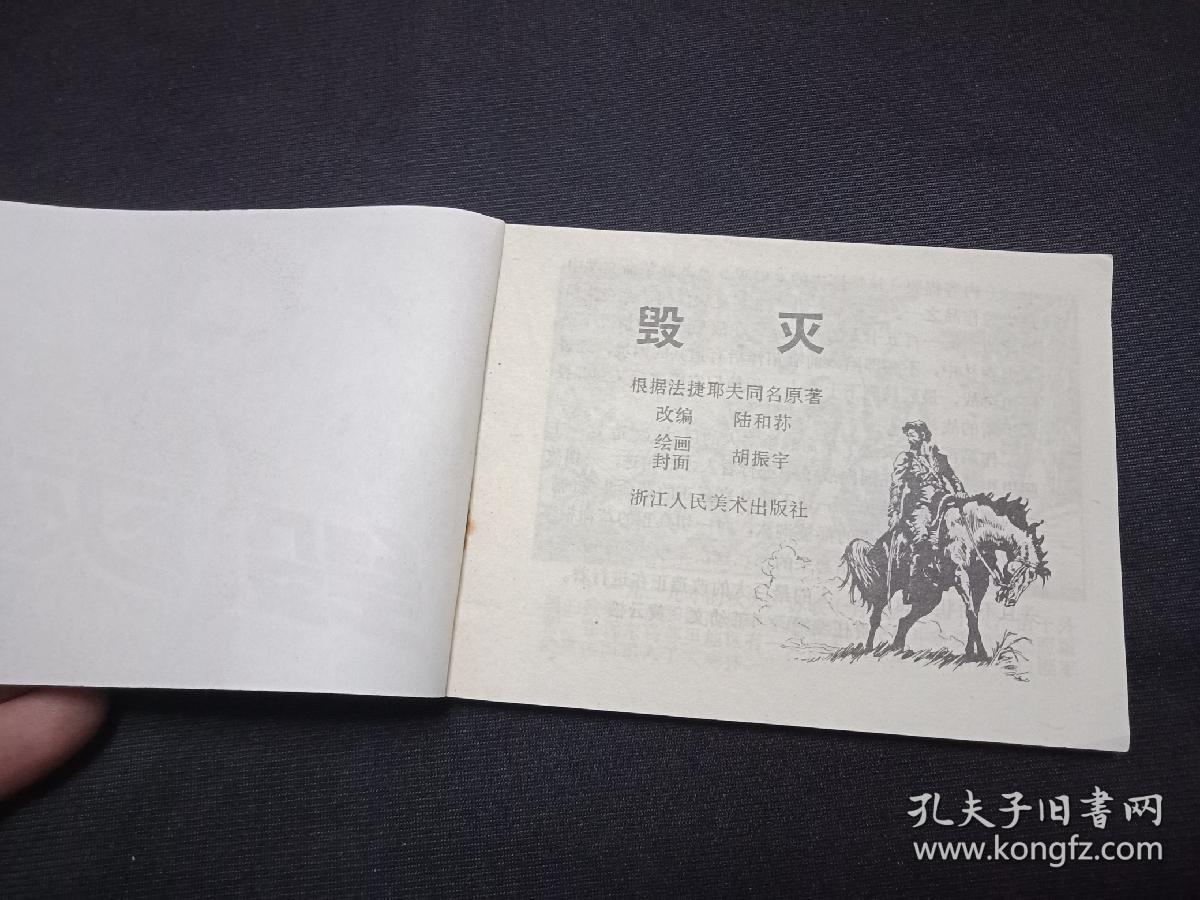 毁 灭
根据法捷耶夫同名原著
改编 陆和荪
绘画
封面 胡振宇
浙江人民美术出版社
孔夫子旧書网
www.kongfz.com